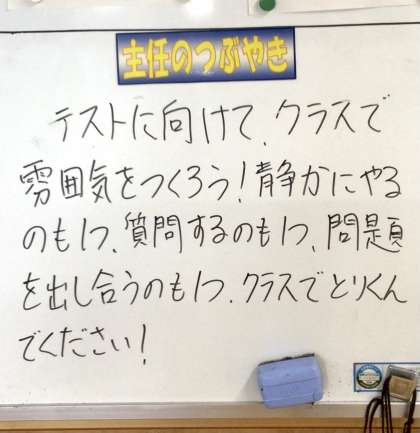 主任のつぶやき
テストに向けて、クラスで
雰囲気をつくろう!静かにやる
のも1つ、質問するのも1つ、問題
を出し合うのも1つ、クラスでとりくん
でください!